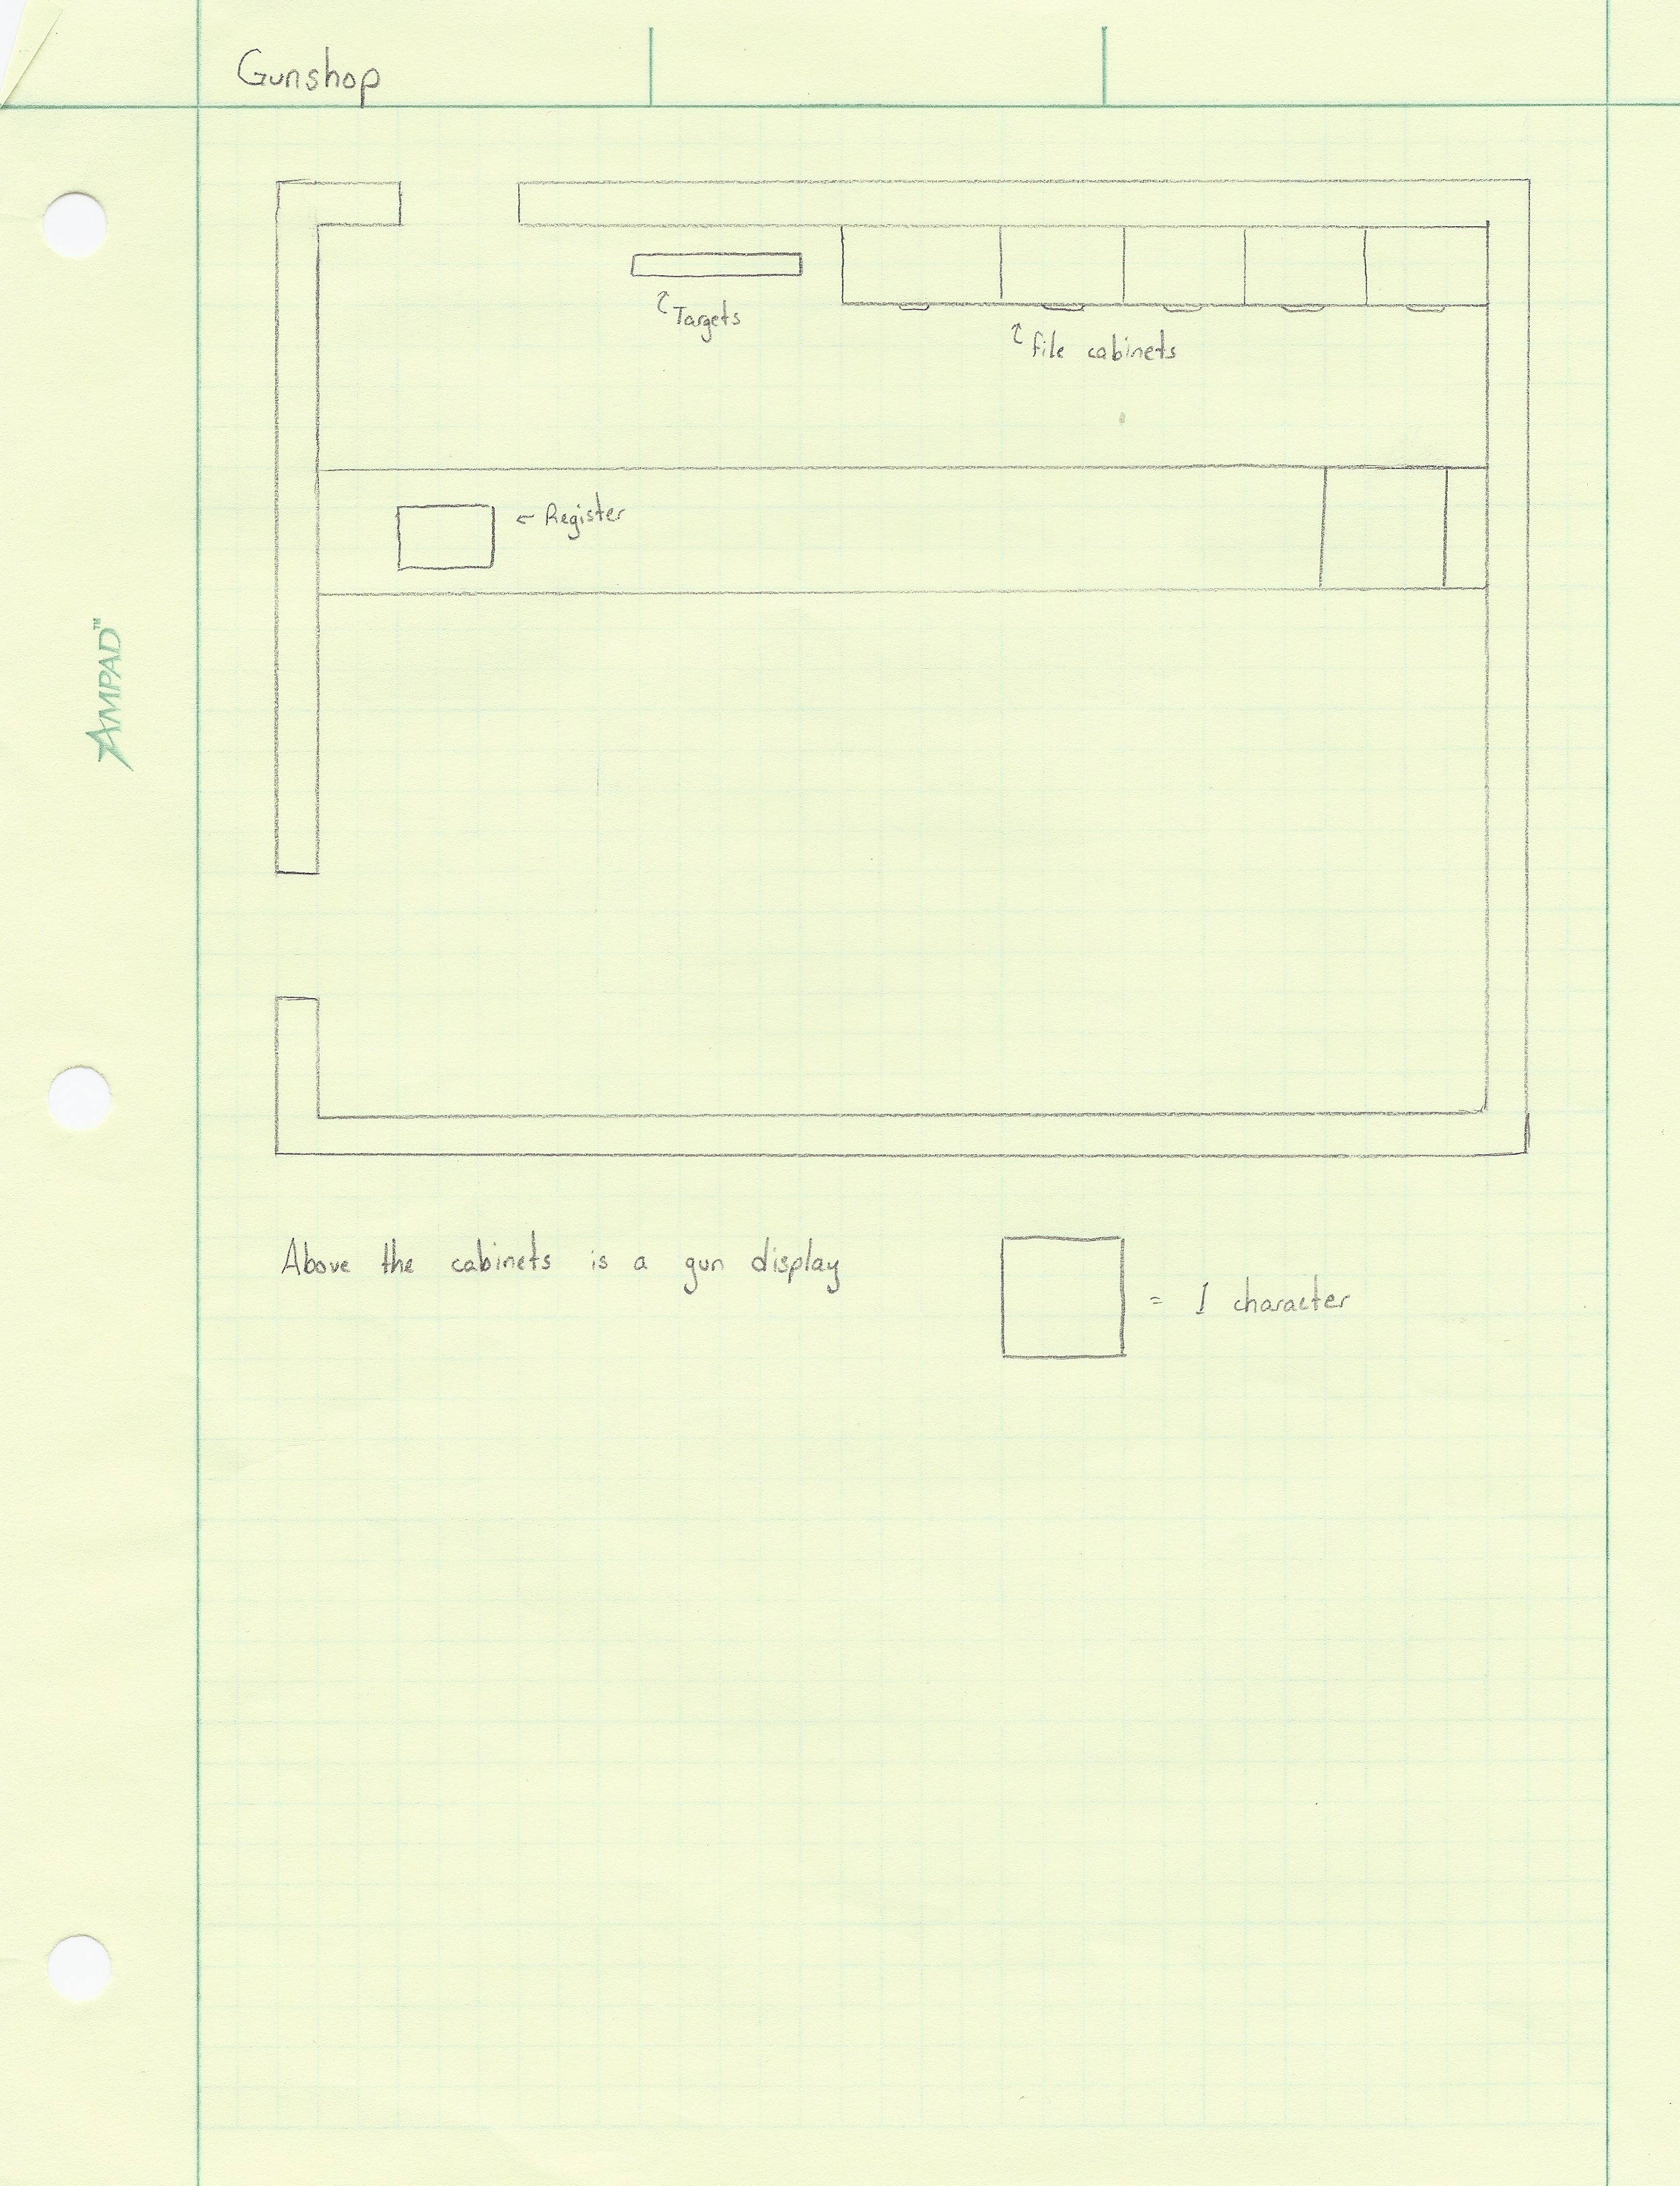 Gunshop
Targets
file cabinets
← Register
AMPAD™
Above the cabinets is a gun display
= 1 character